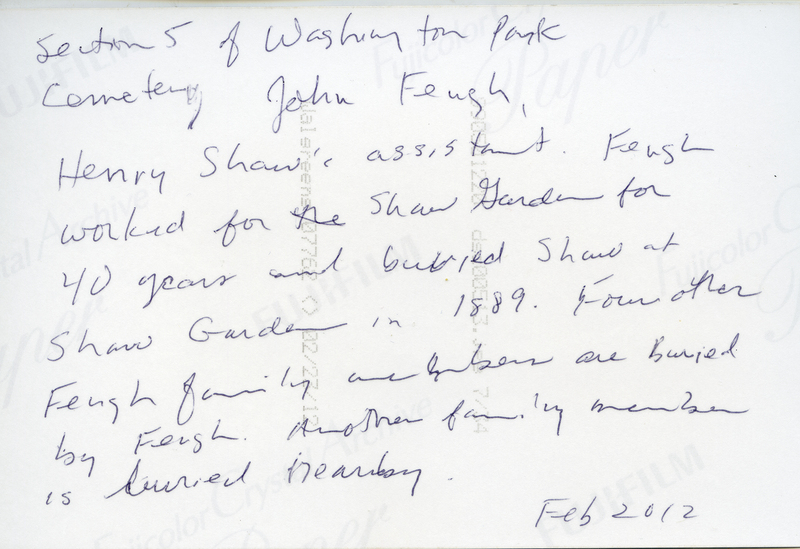 Section 5 of Washington Park
Cemetery John Feugh,
Henry Shaw's assistant. Feugh
worked for the Shaw Garden for
40 years and buried Shaw at
Shaw Garden in 1889. Four other
Feugh family members are Buried
by Feugh. Another family member
is buried nearby.
Feb 2012